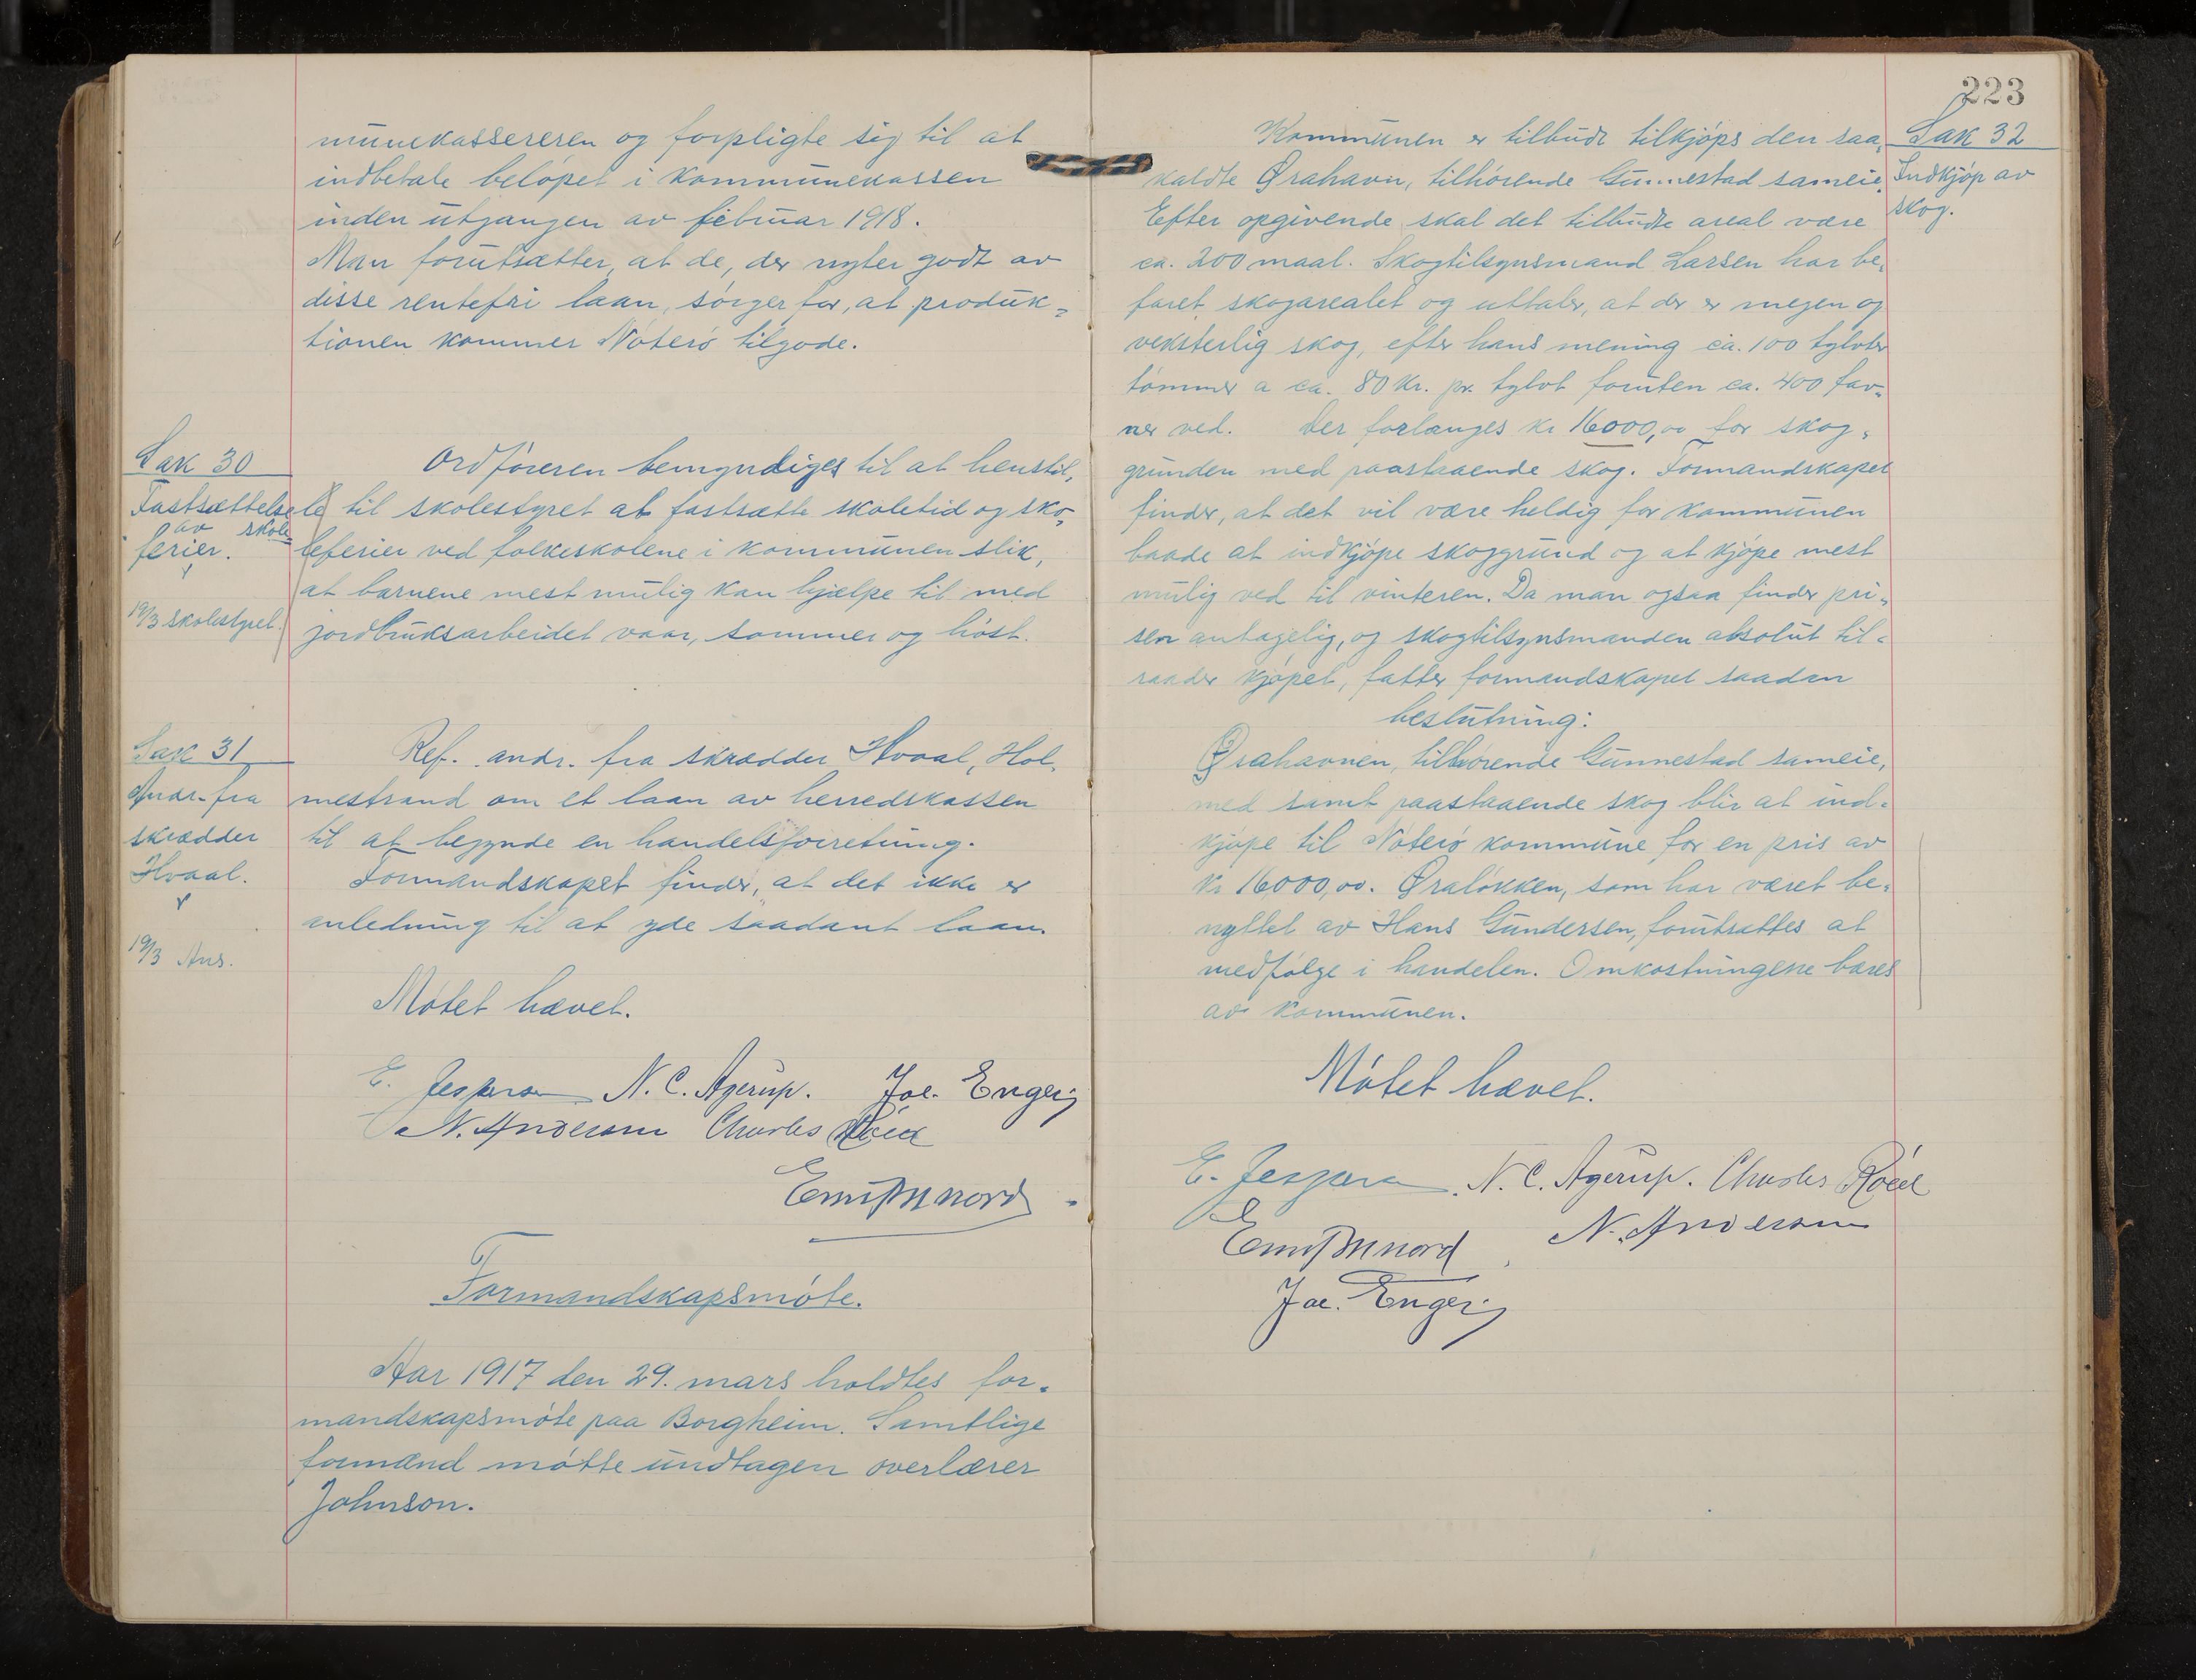 munekassereren og forpligte sig til at
indbetale beløpet i kommunekassen
inden utgangen av februar 1918.
Man forutsætter, at de, der nyter godt av
disse rentefri laan, sørger for, at produk-
tionen kommer Nøterø tilgode.
Sak 30
Fastsættelse
av skole-
ferier.
19/3 skolestyret.
Ordføreren bemyndiges til at henstil-
le til skolestyret at fastsætte skoletid og sko-
leferier ved folkeskolene i kommunen slik,
at barnene mest mulig kan hjælpe til med
jordbruksarbeidet vaar, sommer og høst.
Sak 31
Andr. fra
skrædder
Hvaal.
19/3 Ans.
Ref. andr. fra skrædder Hvaal, Hol-
mestrand om et laan av herredskassen
til at begynde en handelsforretning.
Formandskapet finder, at det ikke er
anledning til at yde saadant laan.
Møtet hævet.
E. Jespersen N. C. Agerup. Joe. Enger
N. Anderssen Charles Røed
Formandskapsmøte.
Aar 1917 den 29. mars holdtes for-
mandskapsmøte paa Borgheim. Samtlige
formænd møtte undtagen overlærer
Johnson.
223
Sak 32
Indkjøp av
skog.
Kommunen er tilbudt tilkjøps den saa-
kaldte Ørahavn, tilhørende Gunnestad sameie.
Efter opgivende skal det tilbudte areal være
ca. 200 maal. Skogtilsynsmand Larsen har be-
faret skogarealet og uttaler, at der er megen og
veksterlig skog, efter hans mening ca. 100 tylvter
tømmer a ca. 80 kr. pr. tylvt foruten ca. 400 fav-
ner ved. Der forlanges kr 16000,00 for skog-
grunden med paastaaende skog. Formandskapet
finder, at det vil være heldig for kommunen
baade at indkjøpe skoggrund og at kjøpe mest
mulig ved til vinteren. Da man ogsaa finder pri-
sen antagelig, og skogtilsynsmanden absolut til-
raader kjøpet, fatter formandskapet saadan
beslutning:
Ørahavnen, tilhørende Gunnestad sameie,
med samt paastaaende skog blir at ind-
kjøpe til Nøterø kommune for en pris av
kr 16000,00. Øraløkken, som har været be-
nyttet av Hans Gundersen, forutsættes at
medfølge i handelen. Omkostningene bæres
av kommunen.
Møtet hævet.
E. Jespersen N. C. Agerup. Charles Røed
N. Anderssen
Joe. Enger